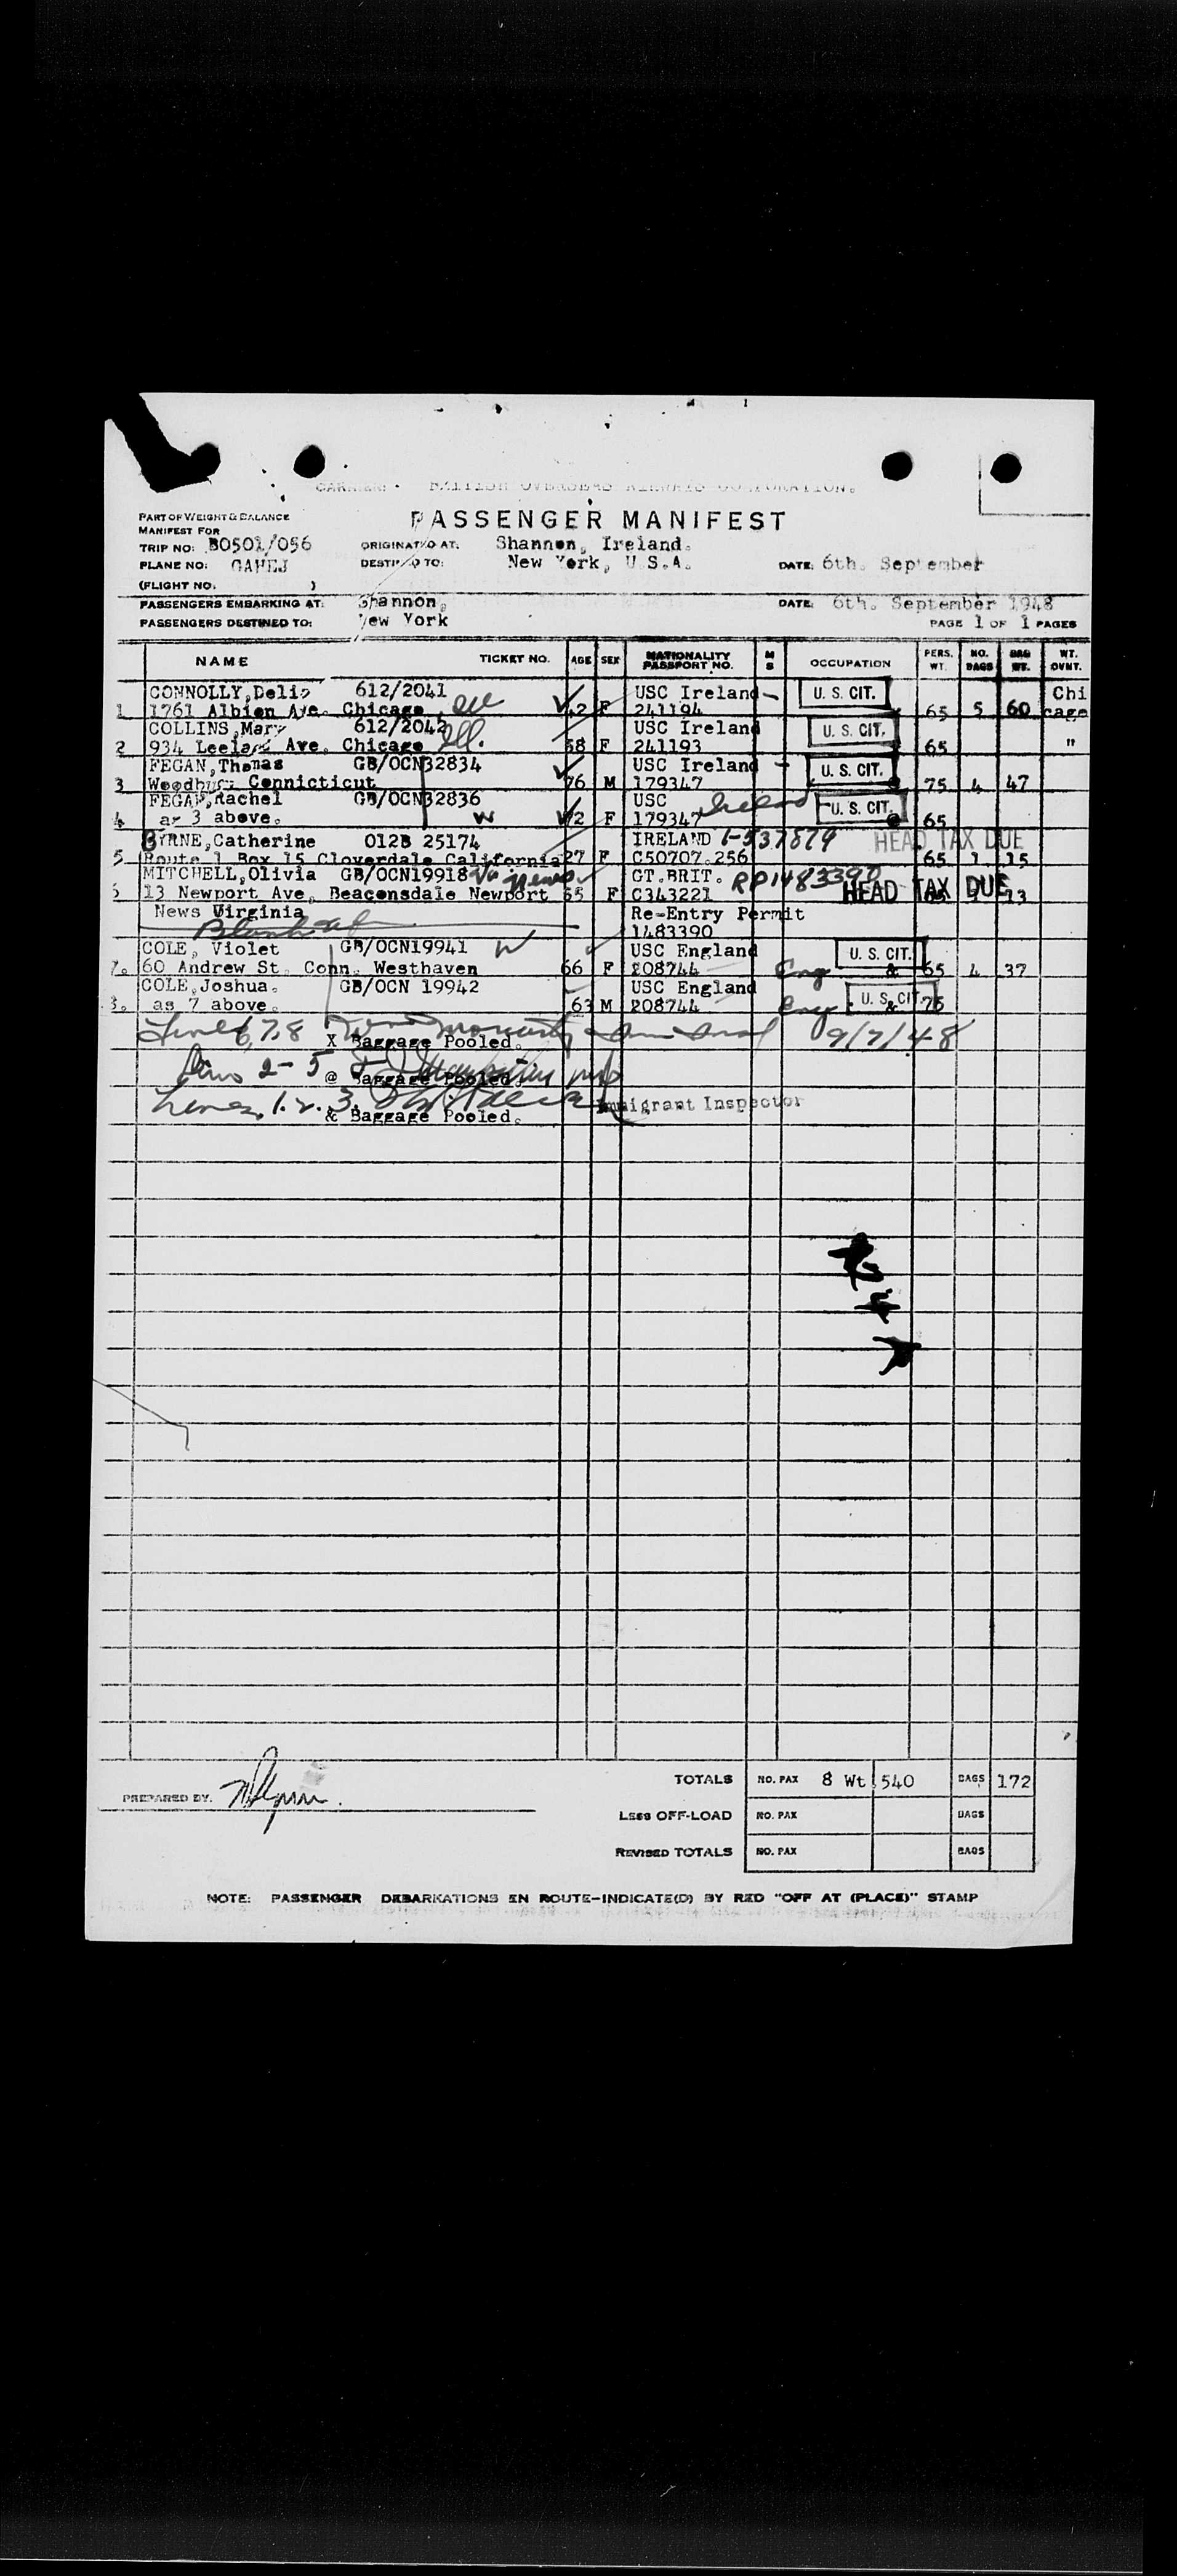 CARRIER: BRITISH OVERSEAS AIRWAYS CORPORATION.
PASSENGER MANIFEST
PART OF WEIGHT & BALANCE
MANIFEST FOR
TRIP NO: BO501/056 ORIGINATED AT: Shannon, Ireland.
PLANE NO: GAHEJ DESTINED TO: New York, U.S.A. DATE: 6th. September
(FLIGHT NO. )
PASSENGERS EMBARKING AT: Shannon, DATE: 6th. September 1948
PASSENGERS DESTINED TO: New York PAGE 1 OF 1 PAGES
NAME TICKET NO. AGE SEX NATIONALITY PASSPORT NO. M S OCCUPATION PERS. WT. NO. BAGS BAG WT. WT. OVNT.
CONNOLLY, Delia 612/2041 USC Ireland U. S. CIT. Chi
1 1761 Albion Ave. Chicago Ill 42 F 241194 65 5 60 cago
COLLINS, Mary 612/2042 USC Ireland U. S. CIT.
2 934 Leeland Ave. Chicago Ill. 58 F 241193 65 "
FEGAN, Thomas GB/OCN32834 USC Ireland U. S. CIT.
3 Woodbury Connicticut 76 M 179347 @ 75 4 47
FEGAN, Rachel GB/OCN32836 USC Ireland U. S. CIT.
4 as 3 above. W 72 F 179347 @ 65
BYRNE, Catherine 012B 25174 IRELAND 1-537879 HEAD TAX DUE
5 Route 1 Box 15 Cloverdale California 27 F C50707.256 65 1 15
MITCHELL, Olivia GB/OCN19918 GT.BRIT. RP1483390 HEAD TAX DUE
6 13 Newport Ave, Beaconsdale Newport 65 F C343221 13
News Virginia Re-Entry Permit
1483390
COLE, Violet GB/OCN19941 W USC England U. S. CIT.
7. 60 Andrew St. Conn. Westhaven 66 F 208744 Eng & 65 4 37
COLE, Joshua. GB/OCN 19942 USC England U. S. CIT.
8. as 7 above. 63 M 208744 Eng. & 75
Lines 6,7,8 9/7/48
X Baggage Pooled.
Lines 2-5
@ Baggage Pooled.
Lines, 1. 2. 3. Immigrant Inspector
& Baggage Pooled.
TOTALS NO. PAX 8 Wt 540 BAGS 172
PREPARED BY.
LESS OFF-LOAD NO. PAX BAGS
REVISED TOTALS NO. PAX BAGS
NOTE: PASSENGER DEBARKATIONS EN ROUTE-INDICATE(D) BY RED "OFF AT (PLACE)" STAMP